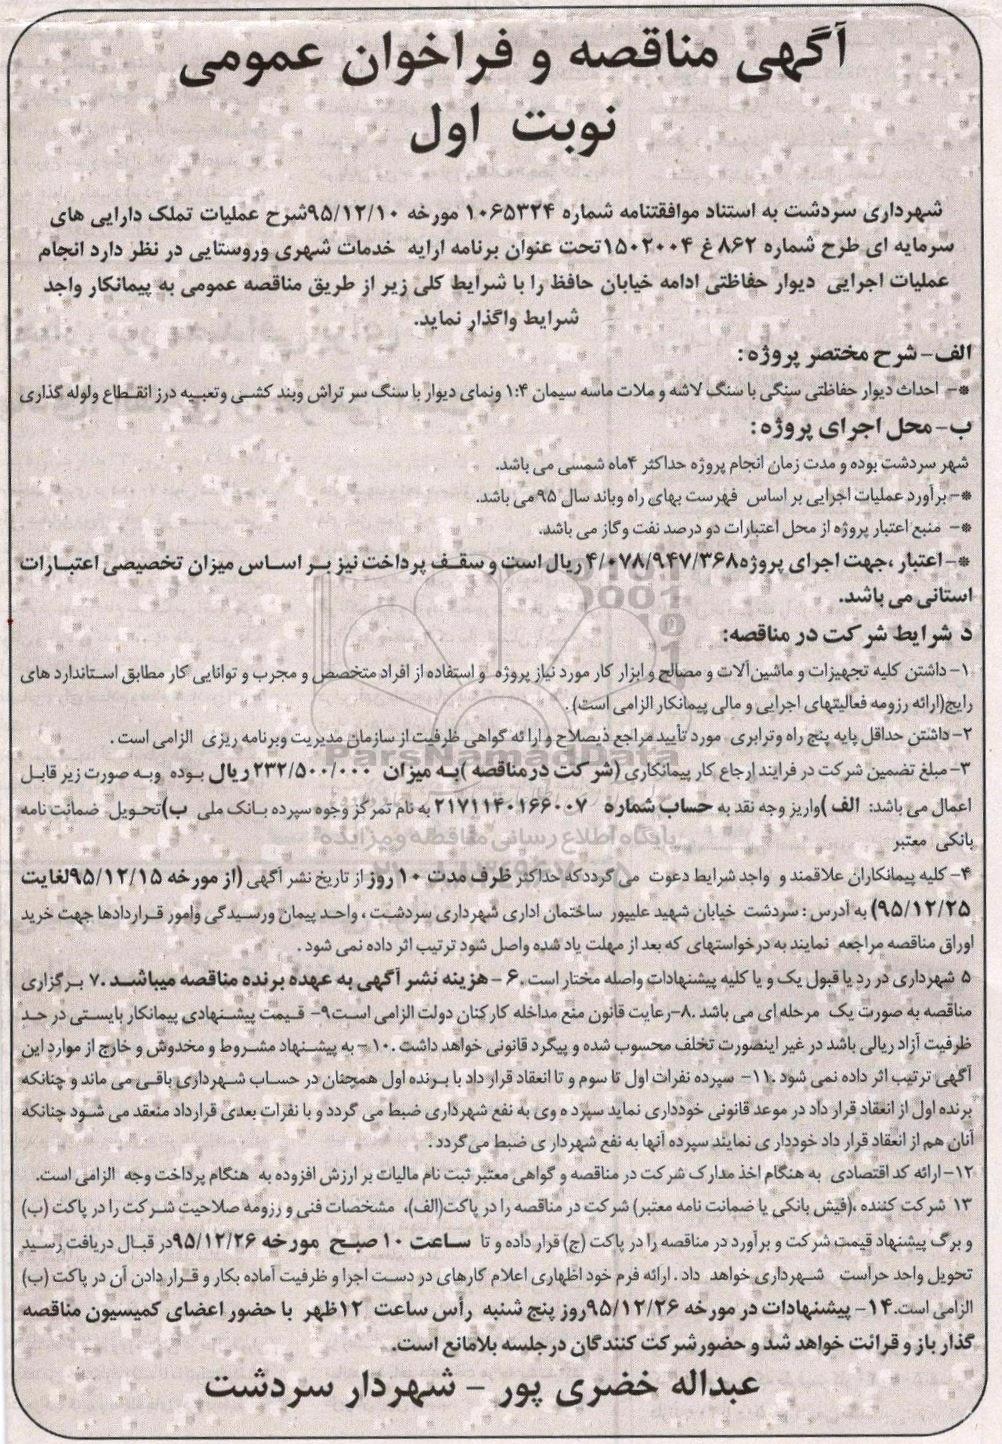 آگهی مناقصه و فراخوان عمومی
نوبت اول
شهرداری سردشت به استناد موافقتنامه شماره ۱۰۶۵۳۲۴ مورخه ۹۵/۱۲/۱۰شرح عملیات تملک دارایی های
سرمایه ای طرح شماره ۸۶۲ غ ۱۵۰۲۰۰۴تحت عنوان برنامه ارایه خدمات شهری وروستایی در نظر دارد انجام
عملیات اجرایی دیوار حفاظتی ادامه خیابان حافظ را با شرایط کلی زیر از طریق مناقصه عمومی به پیمانکار واجد
شرایط واگذار نماید.
الف- شرح مختصر پروژه :
*- احداث دیوار حفاظتی سنگی با سنگ لاشه و ملات ماسه سیمان ۱:۴ ونمای دیوار با سنگ سر تراش وبند کشی وتعبیه درز انقطاع ولوله گذاری
ب- محل اجرای پروژه :
شهر سردشت بوده و مدت زمان انجام پروژه حداکثر ۴ماه شمسی می باشد.
*- برآورد عملیات اجرایی بر اساس فهرست بهای راه وباند سال ۹۵ می باشد.
*- منبع اعتبار پروژه از محل اعتبارات دو درصد نفت وگاز می باشد.
*- اعتبار ،جهت اجرای پروژه۴/۰۷۸/۹۴۷/۳۶۸ ریال است و سقف پرداخت نیز بر اساس میزان تخصیصی اعتبارات
استانی می باشد.
د شرایط شرکت در مناقصه:
۱- داشتن کلیه تجهیزات و ماشین آلات و مصالح و ابزار کار مورد نیاز پروژه و استفاده از افراد متخصص و مجرب و توانایی کار مطابق استاندارد های
رایج(ارائه رزومه فعالیتهای اجرایی و مالی پیمانکار الزامی است) .
۲- داشتن حداقل پایه پنج راه وترابری مورد تأیید مراجع ذیصلاح و ارا ئه گواهی ظرفیت از سازمان مدیریت وبرنامه ریزی الزامی است .
۳- مبلغ تضمین شرکت در فرایند ارجاع کار پیمانکاری (شرکت در مناقصه )به میزان ۲۳۲/۵۰۰/۰۰۰ ریال بوده وبه صورت زیر قابل
اعمال می باشد: الف )واریز وجه نقد به حساب شماره ۲۱۷۱۱۴۰۱۶۶۰۰۷ به نام تمرکز وجوه سپرده بانک ملی ب)تحویل ضمانت نامه
بانکی معتبر
۴- کلیه پیمانکاران علاقمند و واجد شرایط دعوت می گرددکه حداکثر ظرف مدت ۱۰ روز از تاریخ نشر آگهی (از مورخه ۹۵/۱۲/۱۵لغایت
۹۵/۱۲/۲۵) به آدرس : سردشت خیابان شهید علیپور ساختمان اداری شهرداری سردشت ، واحد پیمان ورسیدگی وامور قراردادها جهت خرید
اوراق مناقصه مراجعه نمایند به درخواستهای که بعد از مهلت یاد شده واصل شود ترتیب اثر داده نمی شود .
۵ شهرداری در رد یا قبول یک و یا کلیه پیشنهادات واصله مختار است .۶ - هزینه نشر آگهی به عهده برنده مناقصه میباشد .۷ برگزاری
مناقصه به صورت یک مرحله ای می باشد .۸-رعایت قانون منع مداخله کارکنان دولت الزامی است۹- قیمت پیشنهادی پیمانکار بایستی در حد
ظرفیت آزاد ریالی باشد در غیر اینصورت تخلف محسوب شده و پیگرد قانونی خواهد داشت .۱۰- به پیشنهاد مشروط و مخدوش و خارج از موارد این
آگهی ترتیب اثر داده نمی شود .۱۱- سپرده نفرات اول تا سوم و تا انعقاد قرار داد با برنده اول همچنان در حساب شهرداری باقی می ماند و چنانکه
برنده اول از انعقاد قرار داد در موعد قانونی خودداری نماید سپرد ه وی به نفع شهرداری ضبط می گردد و با نفرات بعدی قرارداد منعقد می شود چنانکه
آنان هم از انعقاد قرار داد خوددار ی نمایند سپرده آنها به نفع شهردار ی ضبط می گردد .
۱۲- ارائه کد اقتصادی به هنگام اخذ مدارک شرکت در مناقصه و گواهی معتبر ثبت نام مالیات بر ارزش افزوده به هنگام پرداخت وجه الزامی است.
۱۳ شرکت کننده ،(فیش بانکی یا ضمانت نامه معتبر) شرکت در مناقصه را در پاکت(الف)، مشخصات فنی و رزومه صلاحیت شرکت را در پاکت (ب)
و برگ پیشنهاد قیمت شرکت و برآورد در مناقصه را در پاکت (ج) قرار داده و تا ساعت ۱۰ صبح مورخه ۹۵/۱۲/۲۶در قبال دریافت رسید
تحویل واحد حراست شهرداری خواهد داد . ارائه فرم خود اظهاری اعلام کارهای در دست اجرا و ظرفیت آماده بکار و قرار دادن آن در پاکت (ب)
الزامی است.۱۴- پیشنهادات در مورخه ۹۵/۱۲/۲۶روز پنج شنبه رأس ساعت ۱۲ظهر با حضور اعضای کمیسیون مناقصه
گذار باز و قرائت خواهد شد و حضور شرکت کنندگان در جلسه بلامانع است.
عبداله خضری پور - شهردار سردشت
ParsNamadData
پایگاه اطلاع رسانی مناقصه و مزایده